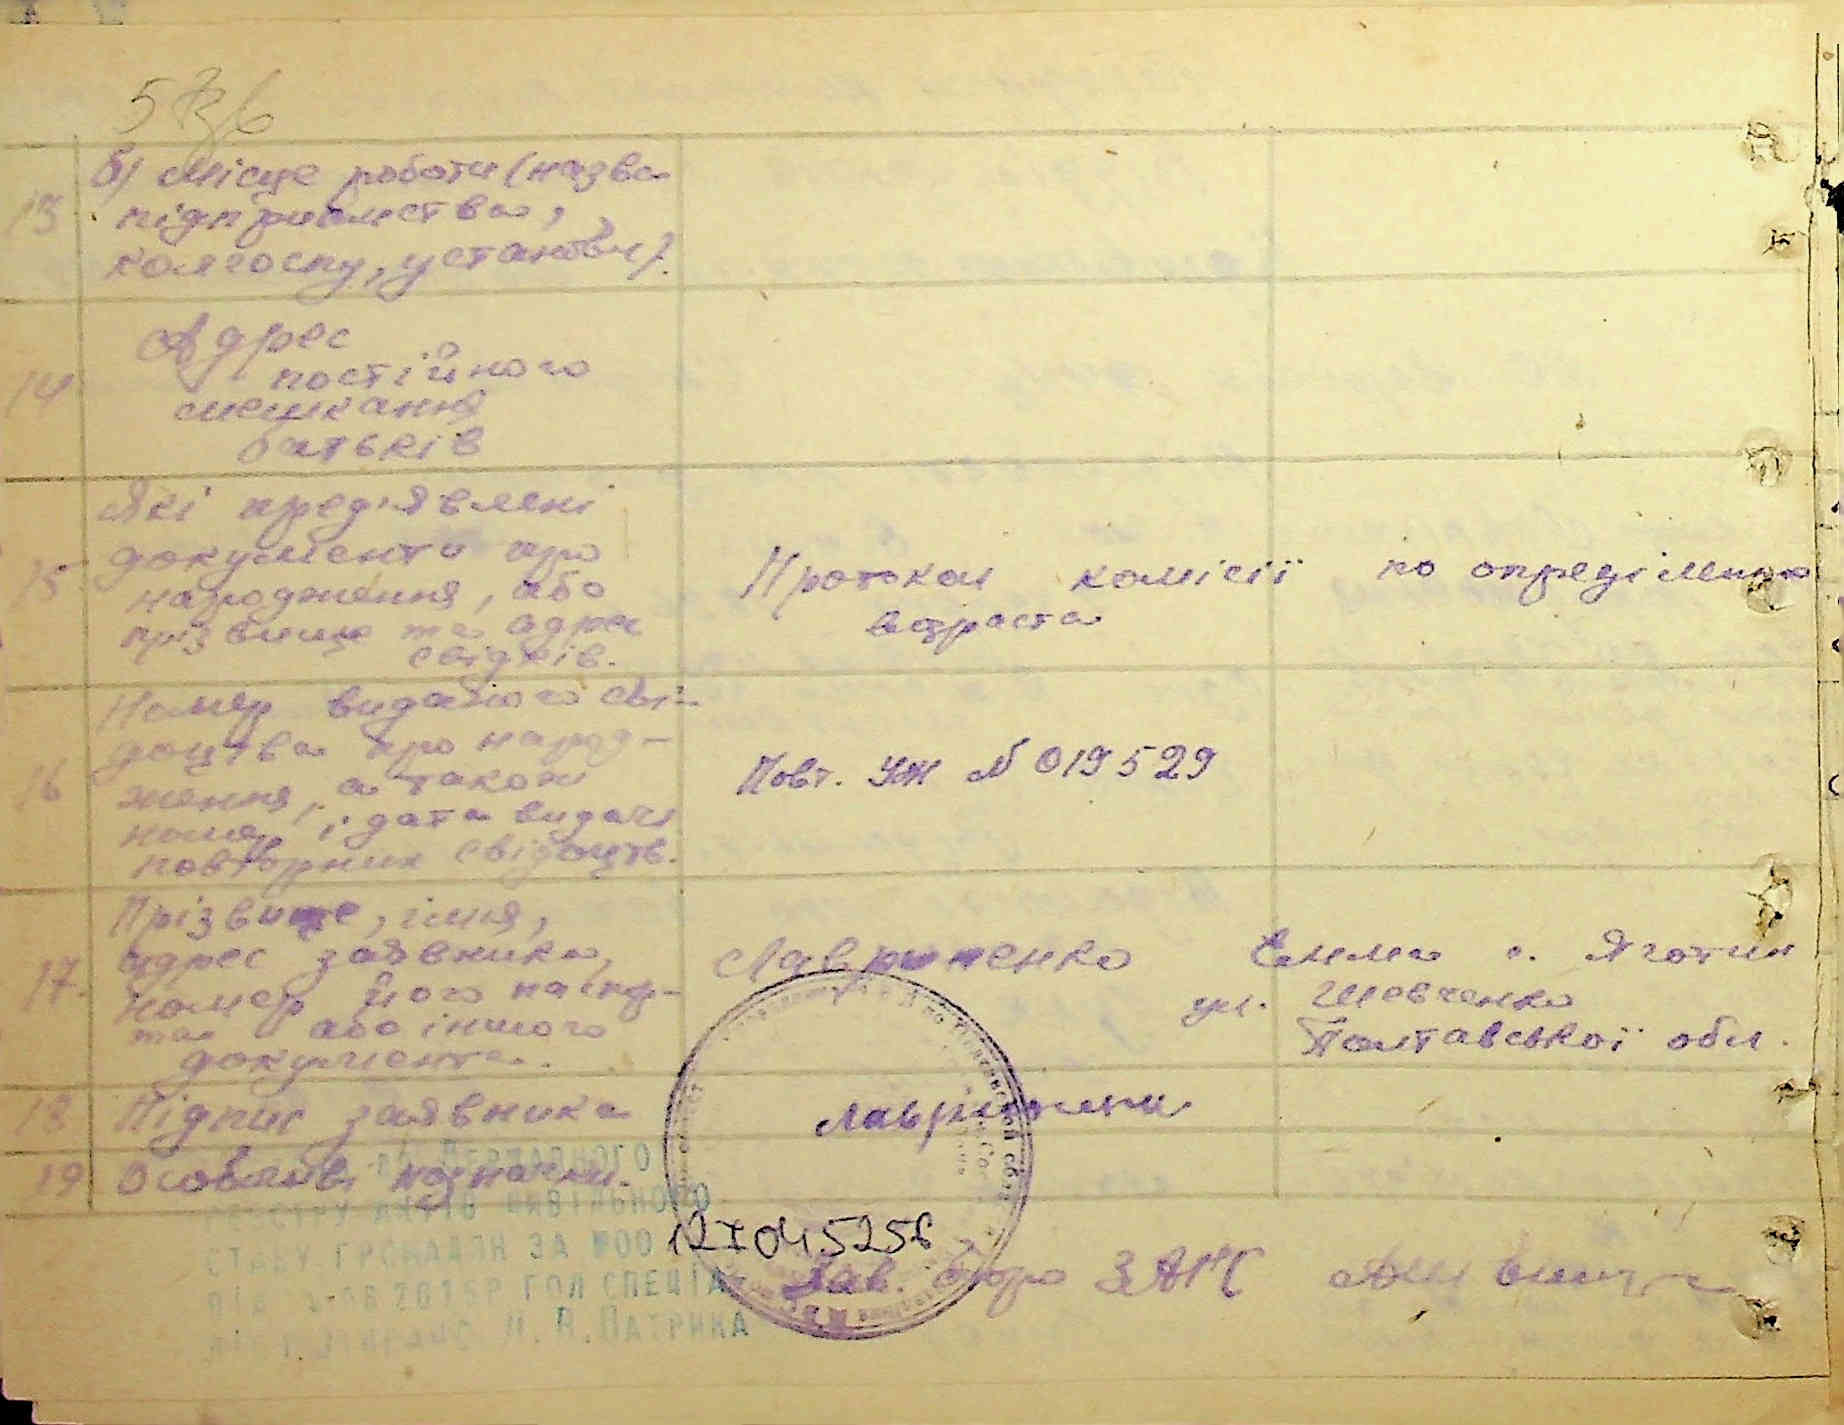 13 б) місце роботи (назва
підприємства,
колгоспу, установи).
14 Адрес
постійного
мешкання
батьків
15 Які пред'явлені
документи про
народження, або
прізвище та адрес
свідків.
Протокол комісії по определению
возраста
16 Номер виданого сві-
доцтва про народ-
ження, а також
номер і дата видачі
повторних свідоцтв.
Повт. УЖ № 019529
17. Прізвище, імня,
адрес заявника,
номер його паспор-
та або іншого
документа.
Лавриненко Емма с. Яготин
ул. Шевченко
Полтавської обл.
18 Підпис заявника
19 Особливі
Державного
актів цивільного
стану громадян за №00
2015р гол спеціа
Патрика
12I045256
Зав. бюро ЗАГС